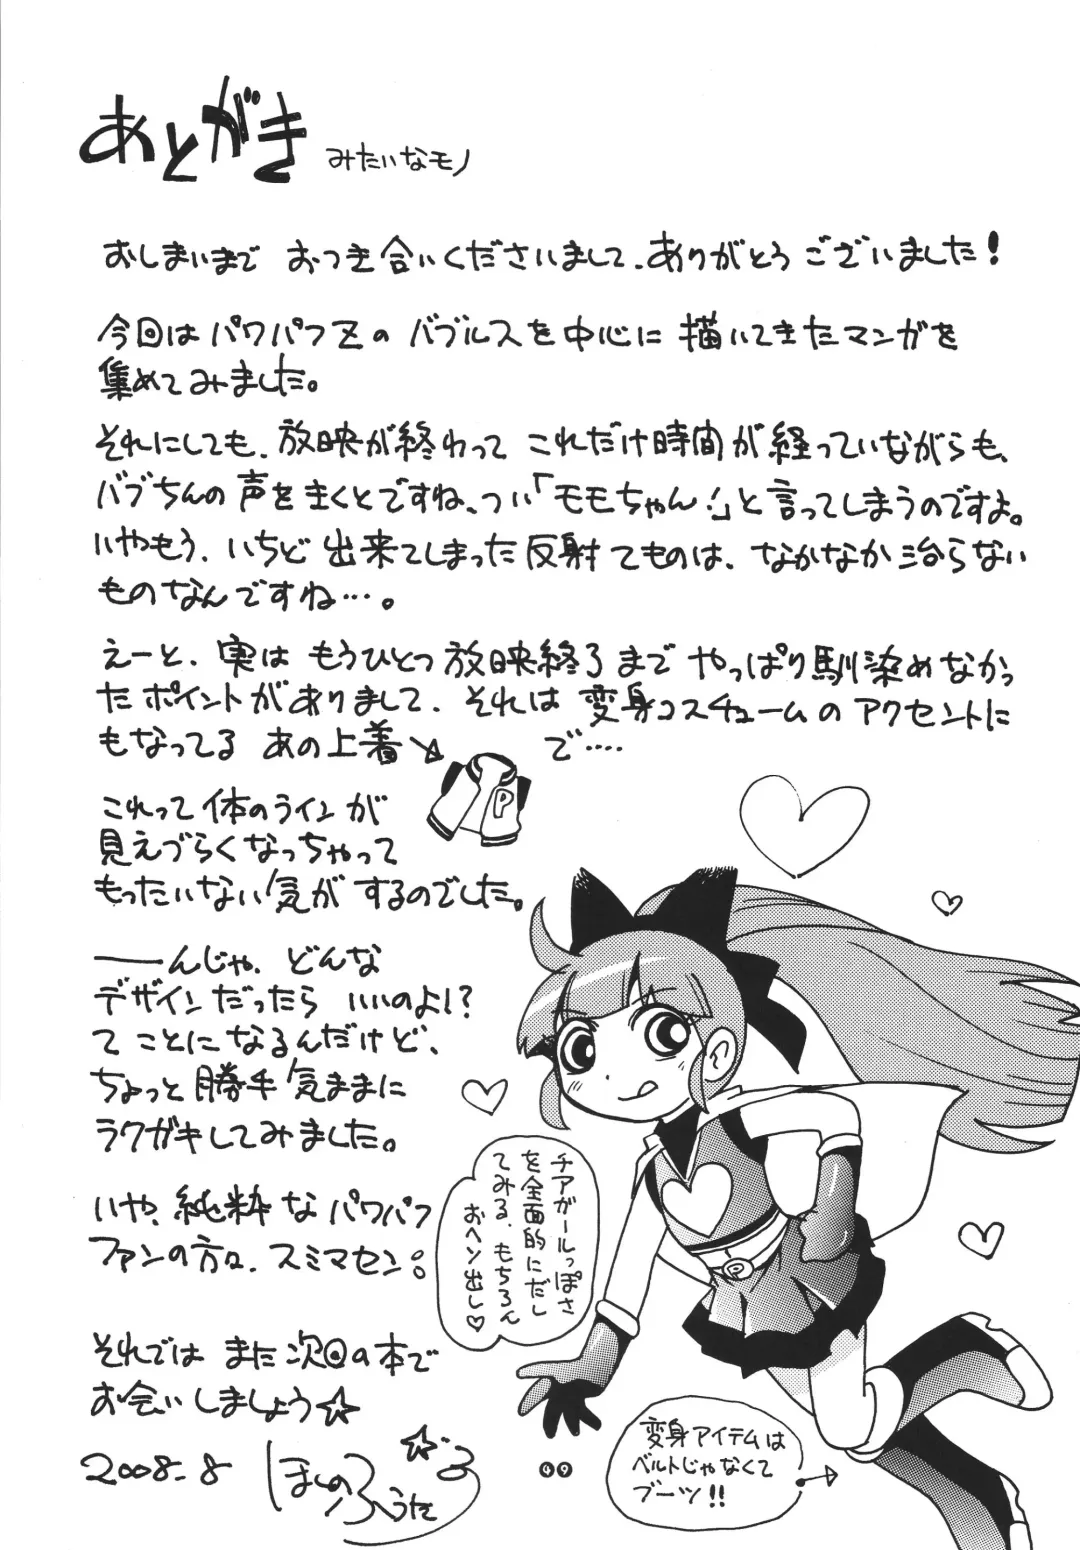 あとがき みたいなモノ
おしまいまで おつき合いくださいまして、ありがとう ございました!
今回は パワパフZの バブルスを中心に 描いてきたマンガを
集めてみました。
それにしても、放映が終わって これだけ時間が経っていながらも、
バブちんの声をきくとですね、つい「モモちゃん!」と言ってしまうのですよ。
いやもう、いちど 出来てしまった反射てものは、なかなか治らない
ものなんですね…。
えーと、実は もうひとつ 放映終了まで やっぱり馴染めなかっ
たポイントがありまして、それは 変身コスチュームのアクセントに
もなってる あの上着 で‥‥
P
これって 体のラインが
見えづらくなっちゃって
もったいない気が するのでした。
――んじゃ、どんな
デザインだったら いいのよ!?
て ことに なるんだけど、
ちょっと 勝手気ままに
ラクガキしてみました。
いや、純粋な パワパフ
ファンの方々、スミマセン。
それでは また 次回の本で
お会いしましょう☆
2008.8
チアガールっぽさ
を全面的にだし
てみる、もちろん
おヘソ出し♡
P
変身アイテムは
ベルトじゃなくて
ブーツ!!
49